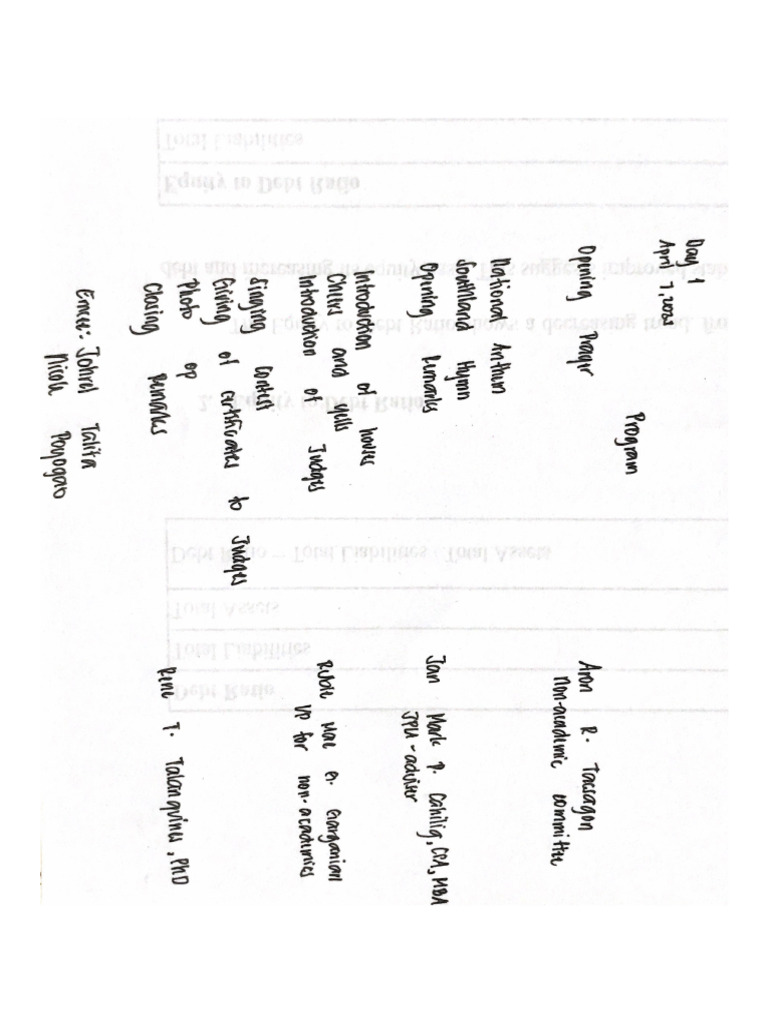 Day 1
April 7, 2025
Program
Opening Prayer
Aron R. Tacsagon
Non-academic committee
National Anthem
Southland Hymn
Opening Remarks
Jan Mark P. Cahilig, CPA, MBA
JPIA - adviser
Introduction of house
Cheers and yells
Introduction of Judges
Rubie Mae G. Garganian
VP for non-academics
Singing Contest
Giving of certificates to Judges
Photo op
Closing Remarks
Rene T. Talanquines, PhD
Emcee: Johrel Talita
Nicole Poyogao
Total Liabilities
Equity to Debt Ratio
debt and increasing its equity
suggests improved
The Equity to Debt Ratio shows a decreasing trend
2. Equity to Debt Ratio
Debt Ratio = Total Liabilities / Total Assets
Total Assets
Total Liabilities
Debt Ratio